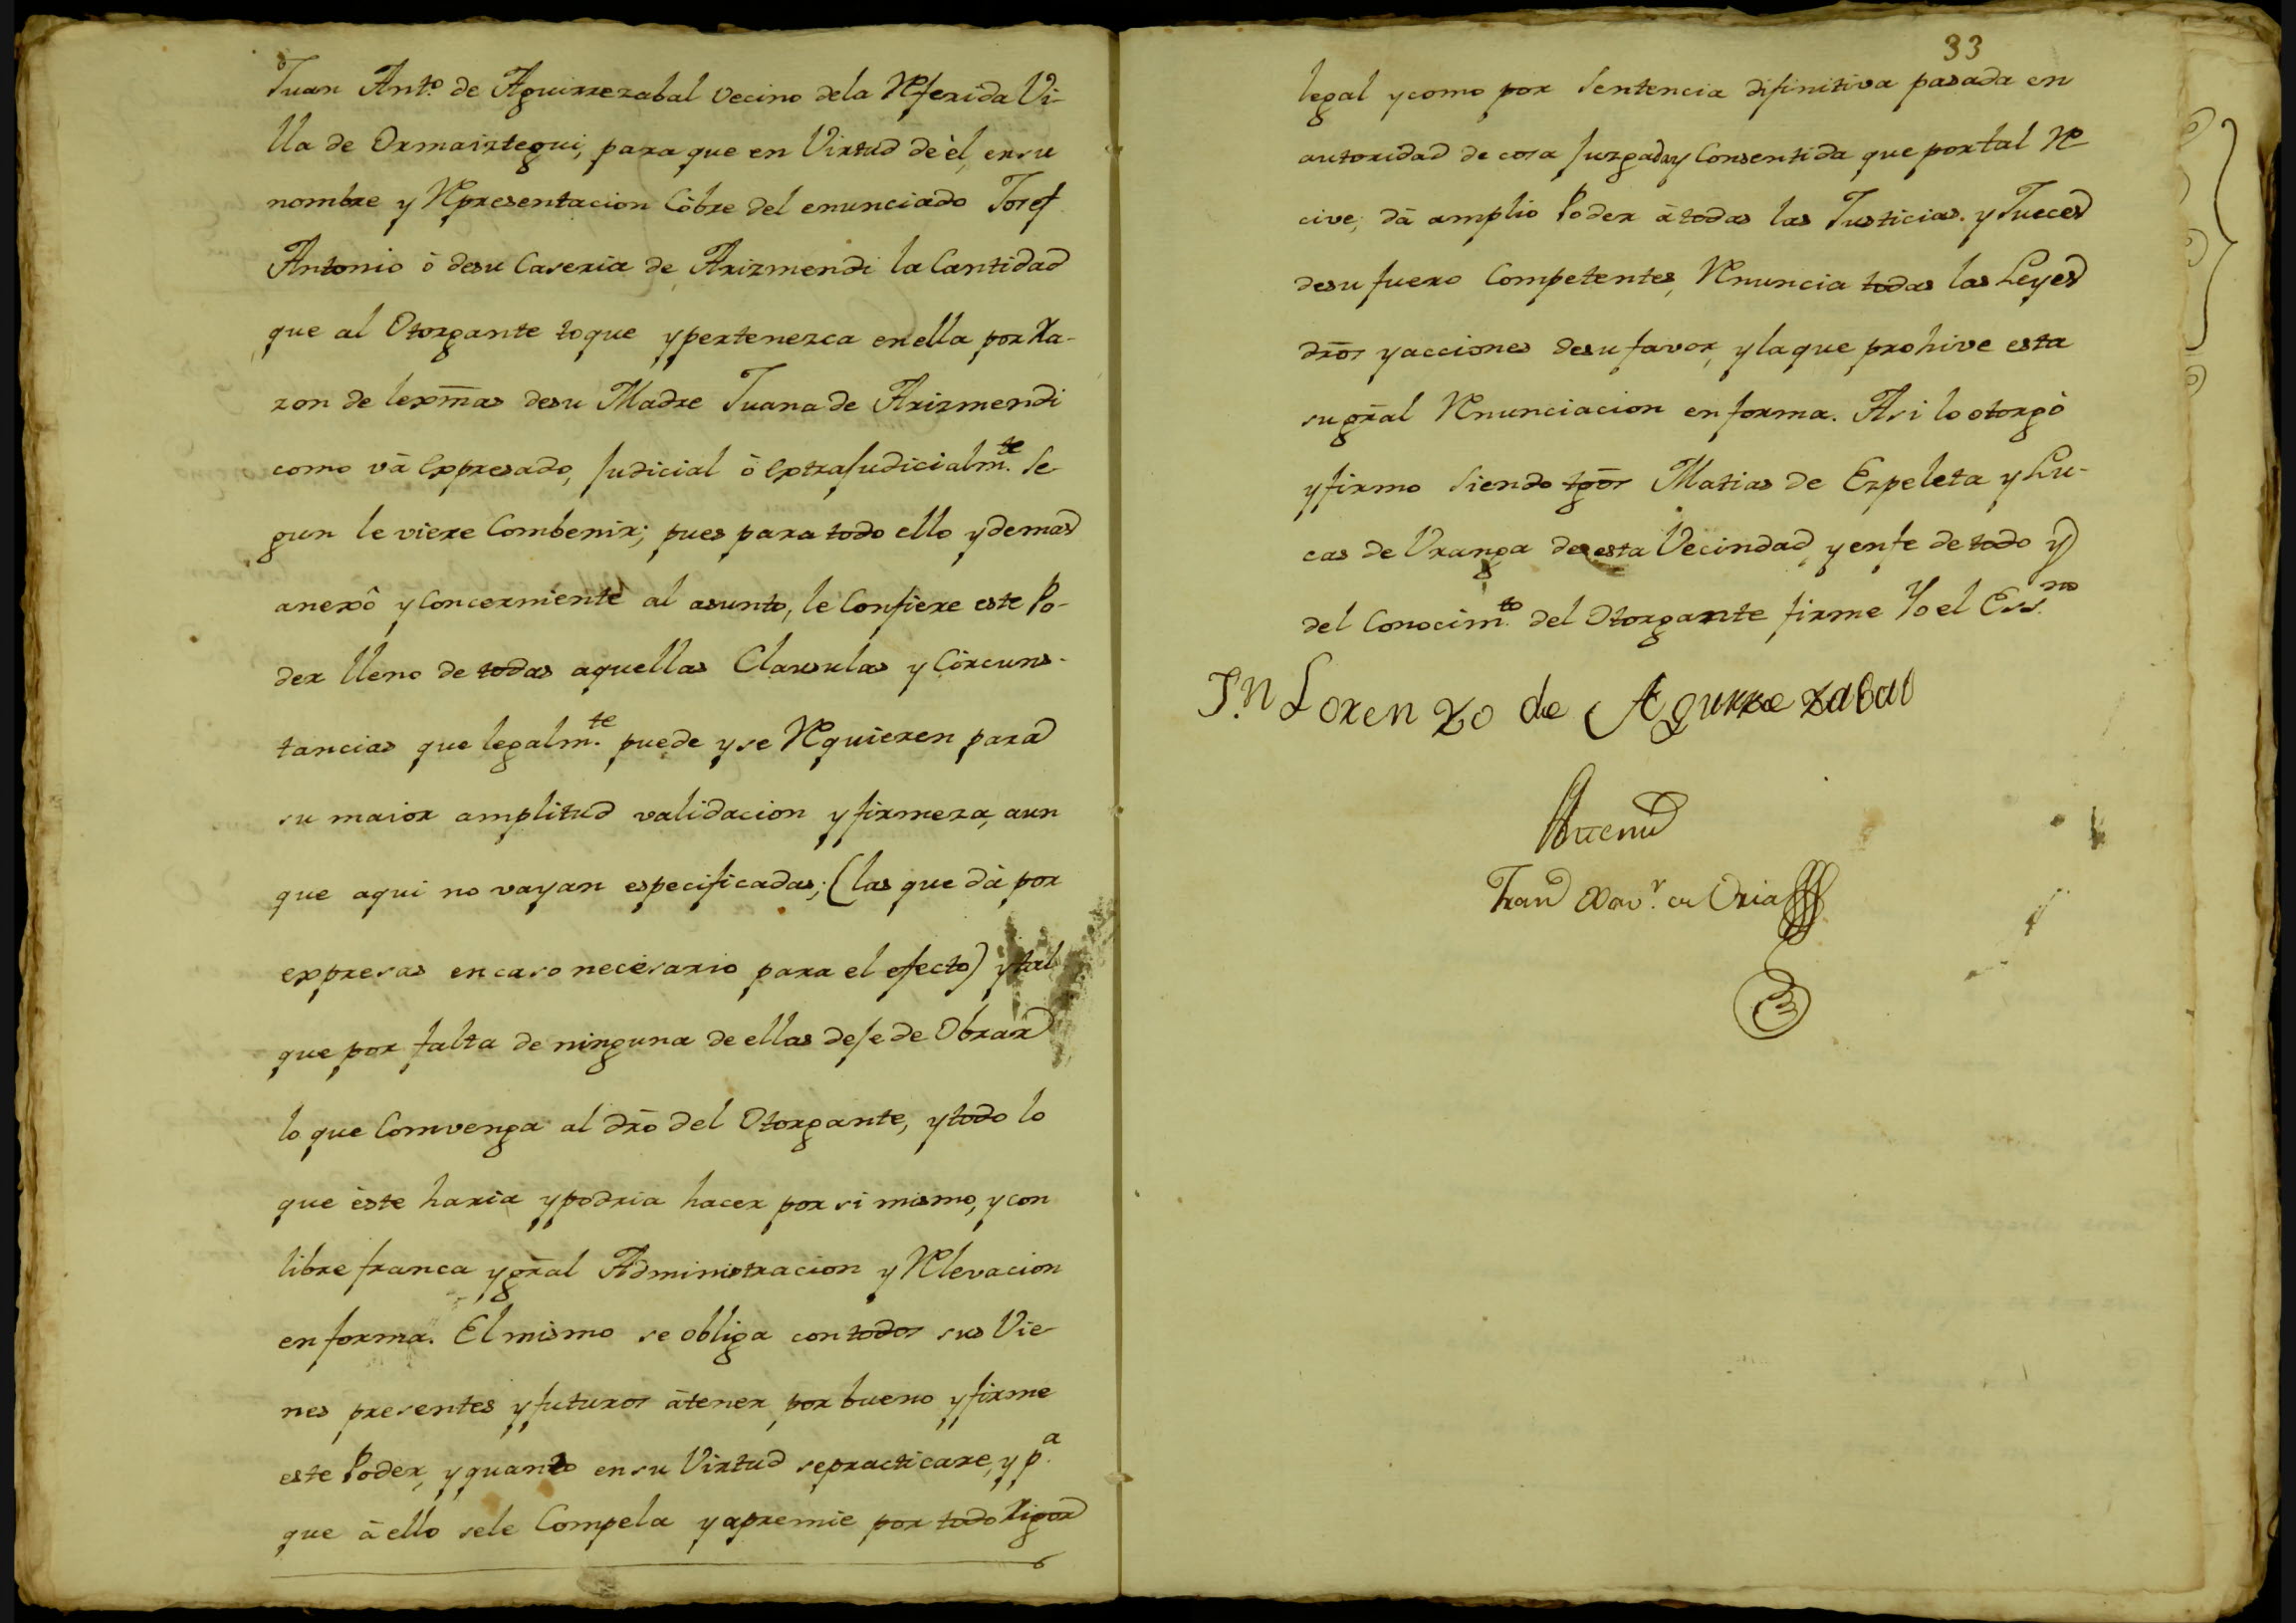 Juan Ant.º de Aguirrezabal vecino dela Referida Vi-
lla de Ormaiztegui, para que en Virtud de èl, en su
nombre y Representacion Cobre del enunciado Josef
Antonio ò desu Caseria de Arizmendi la Cantidad
que al Otorgante toque y pertenezca en ella por Ra-
zon de lexmas desu Madre Juana de Arizmendi
como và expresado, Judicial ò extraJudicialm.te Se
gun le viere Combenir; pues para todo ello y demas
anexô y Concerniente al asunto, le Confiere este Po-
der lleno de todas aquellas Clausulas y Circuns-
tancias que legalm.te puede y se Requieren para
su maior amplitud validacion y firmeza, aun
que aqui no vayan especificadas; (las que dà por
expresas en caso necesario para el efecto) y tal
que por falta de ninguna de ellas deje de Obrar
lo que Convenga al dro del Otorgante, y todo lo
que èste haria y podria hacer por si mismo, y con
libre franca y gral Administracion y Relevacion
en forma. El mismo se obliga con todos sus Vie-
nes presentes y futuros à tener por bueno y firme
este Poder, y quanto en su Virtud se practicare, y p.a
que à ello sele Compela y apremie por todo Rigor
33
legal y como por Sentencia difinitiva pasada en
autoridad de cosa Juzgada y Consentida que por tal Re
cive, dà amplio Poder à todas las Justicias y Jueces
desu fuero Competentes, Renuncia todas las Leyes
dros y acciones desu favor, y la que prohive esta
su gral Renunciacion en forma. Asi lo otorgò
y firmo Siendo tgos Matias de Ezpeleta y Lu-
cas de Uranga de esta Vecindad, y en fe de todo y
del Conocim.to del Otorgante firme Yo el Ess.no
J.n Lorenzo de Agirrezabal
Ante mi
Fran.co Xav.r de Oria